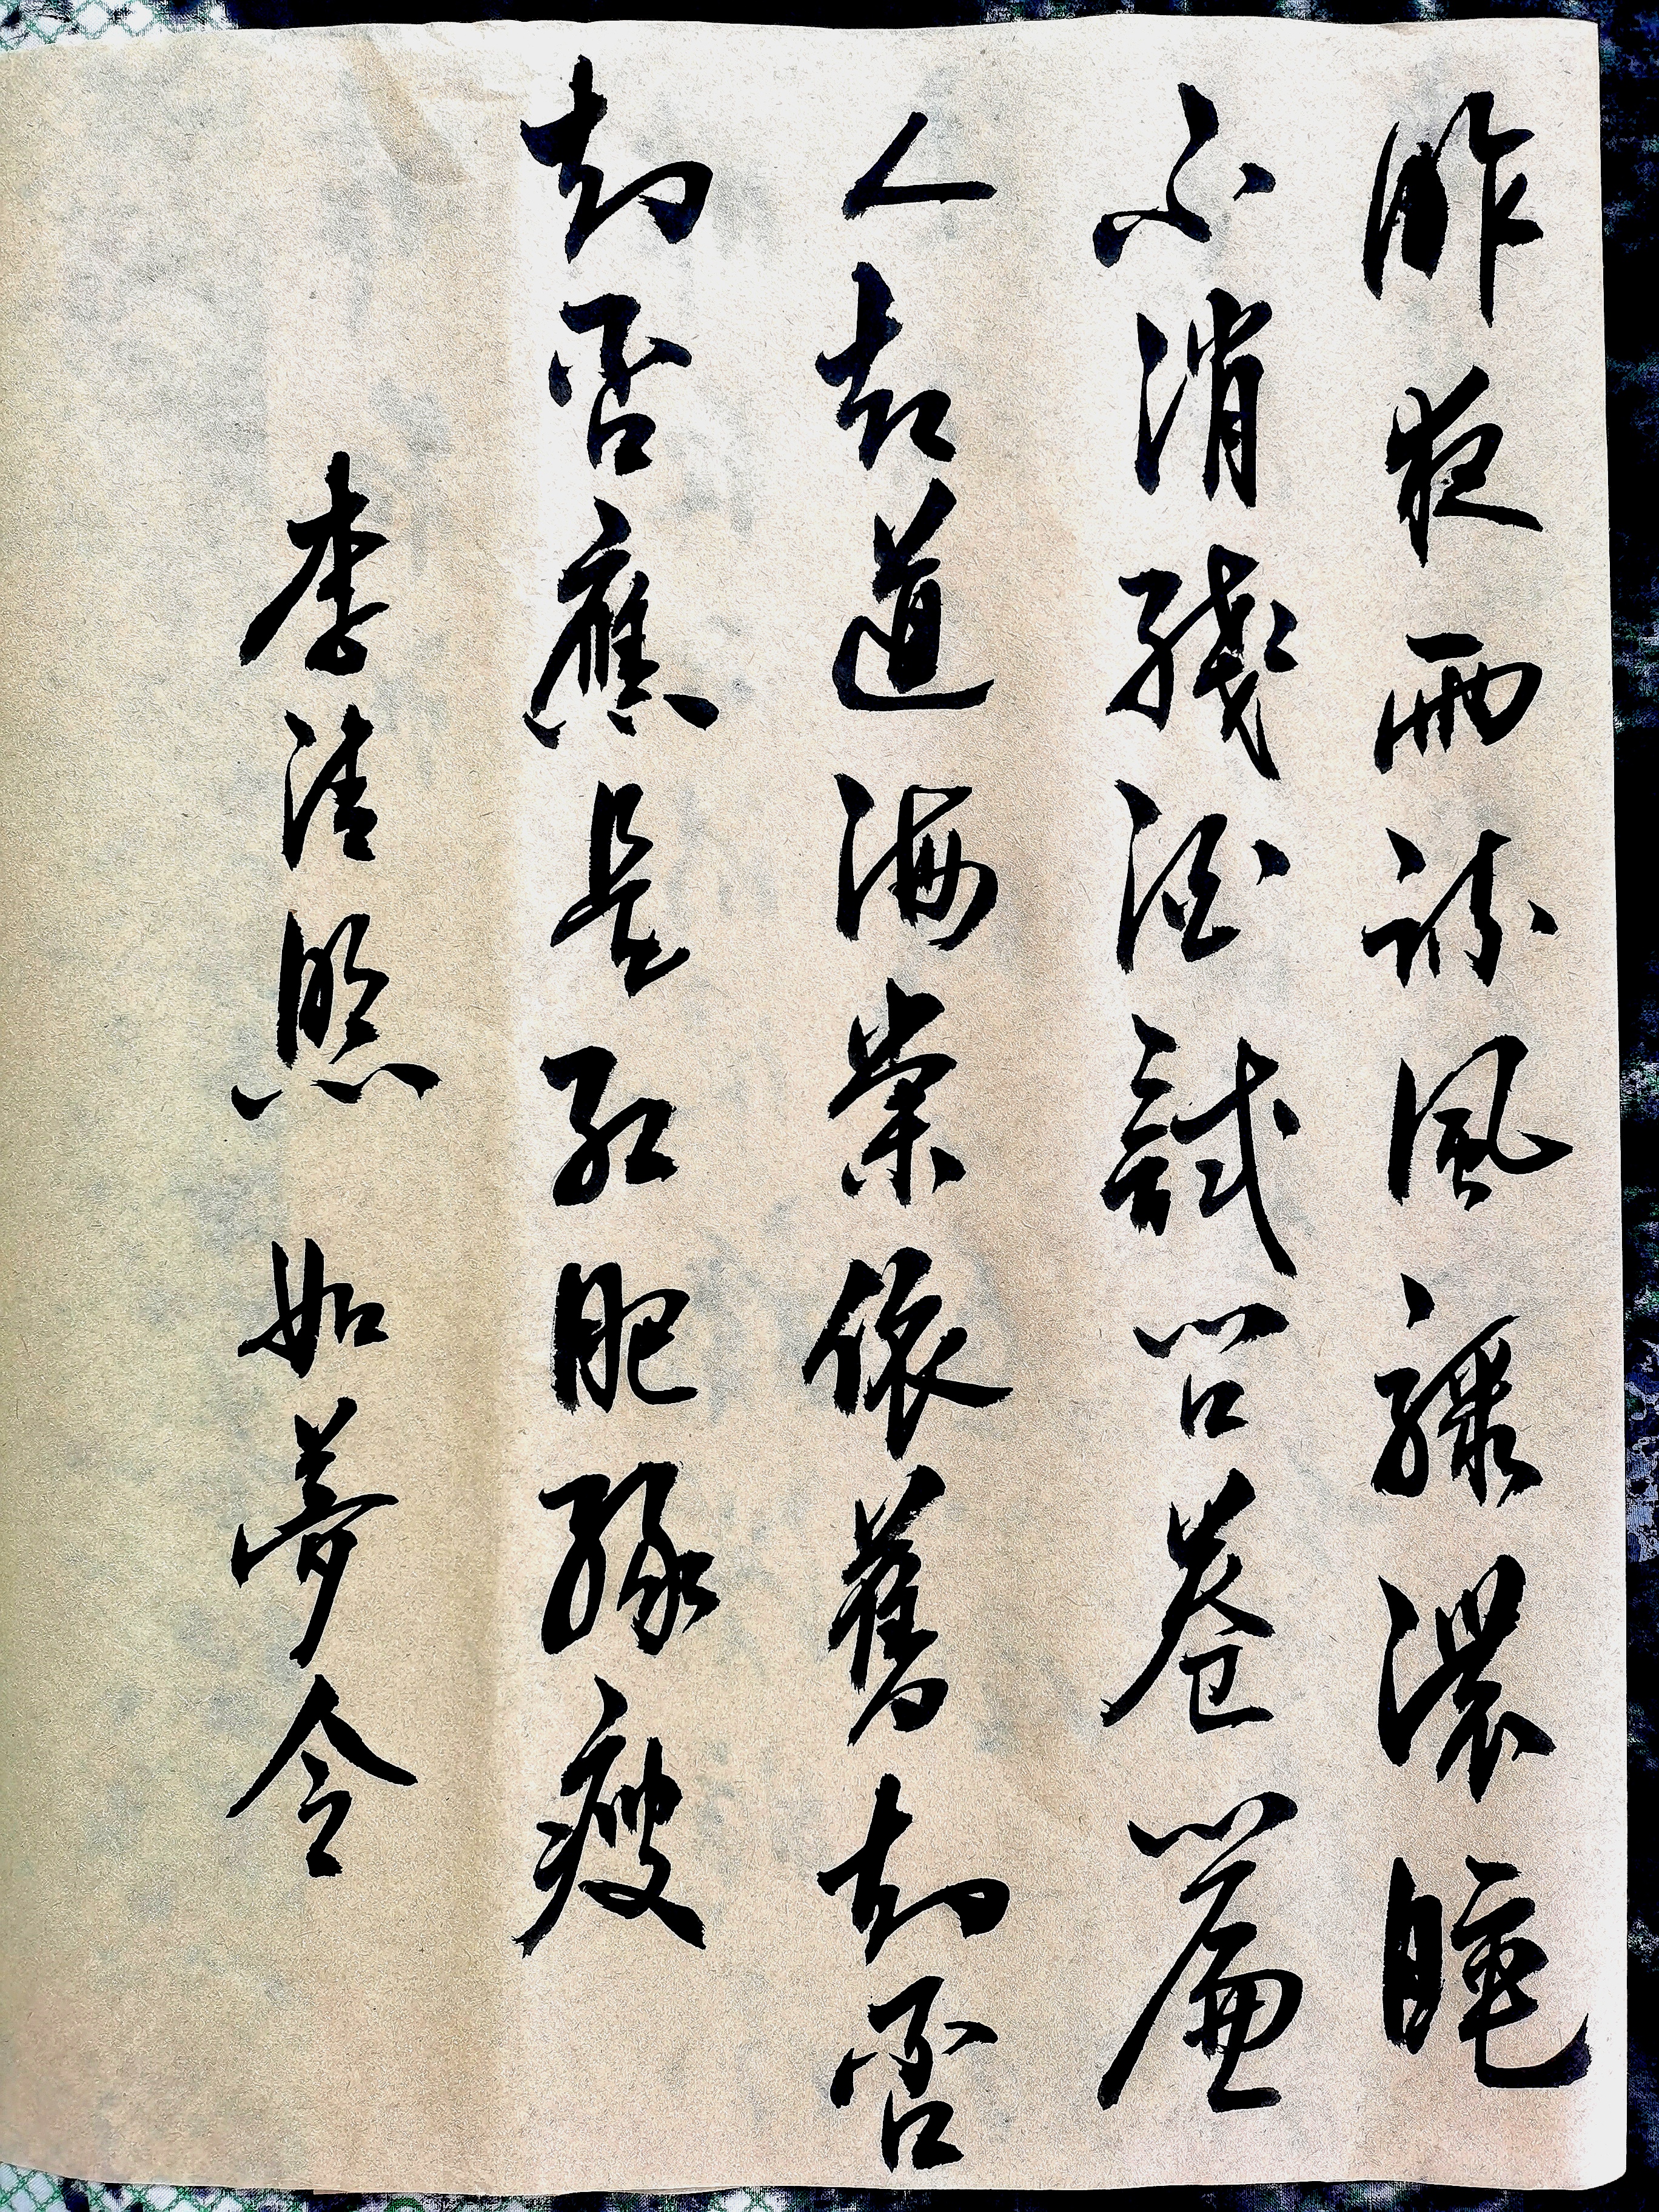 昨夜雨疏風驟濃睡
不消殘酒試問卷簾
人却道海棠依舊知否
知否應是紅肥綠瘦
李清照 如夢令